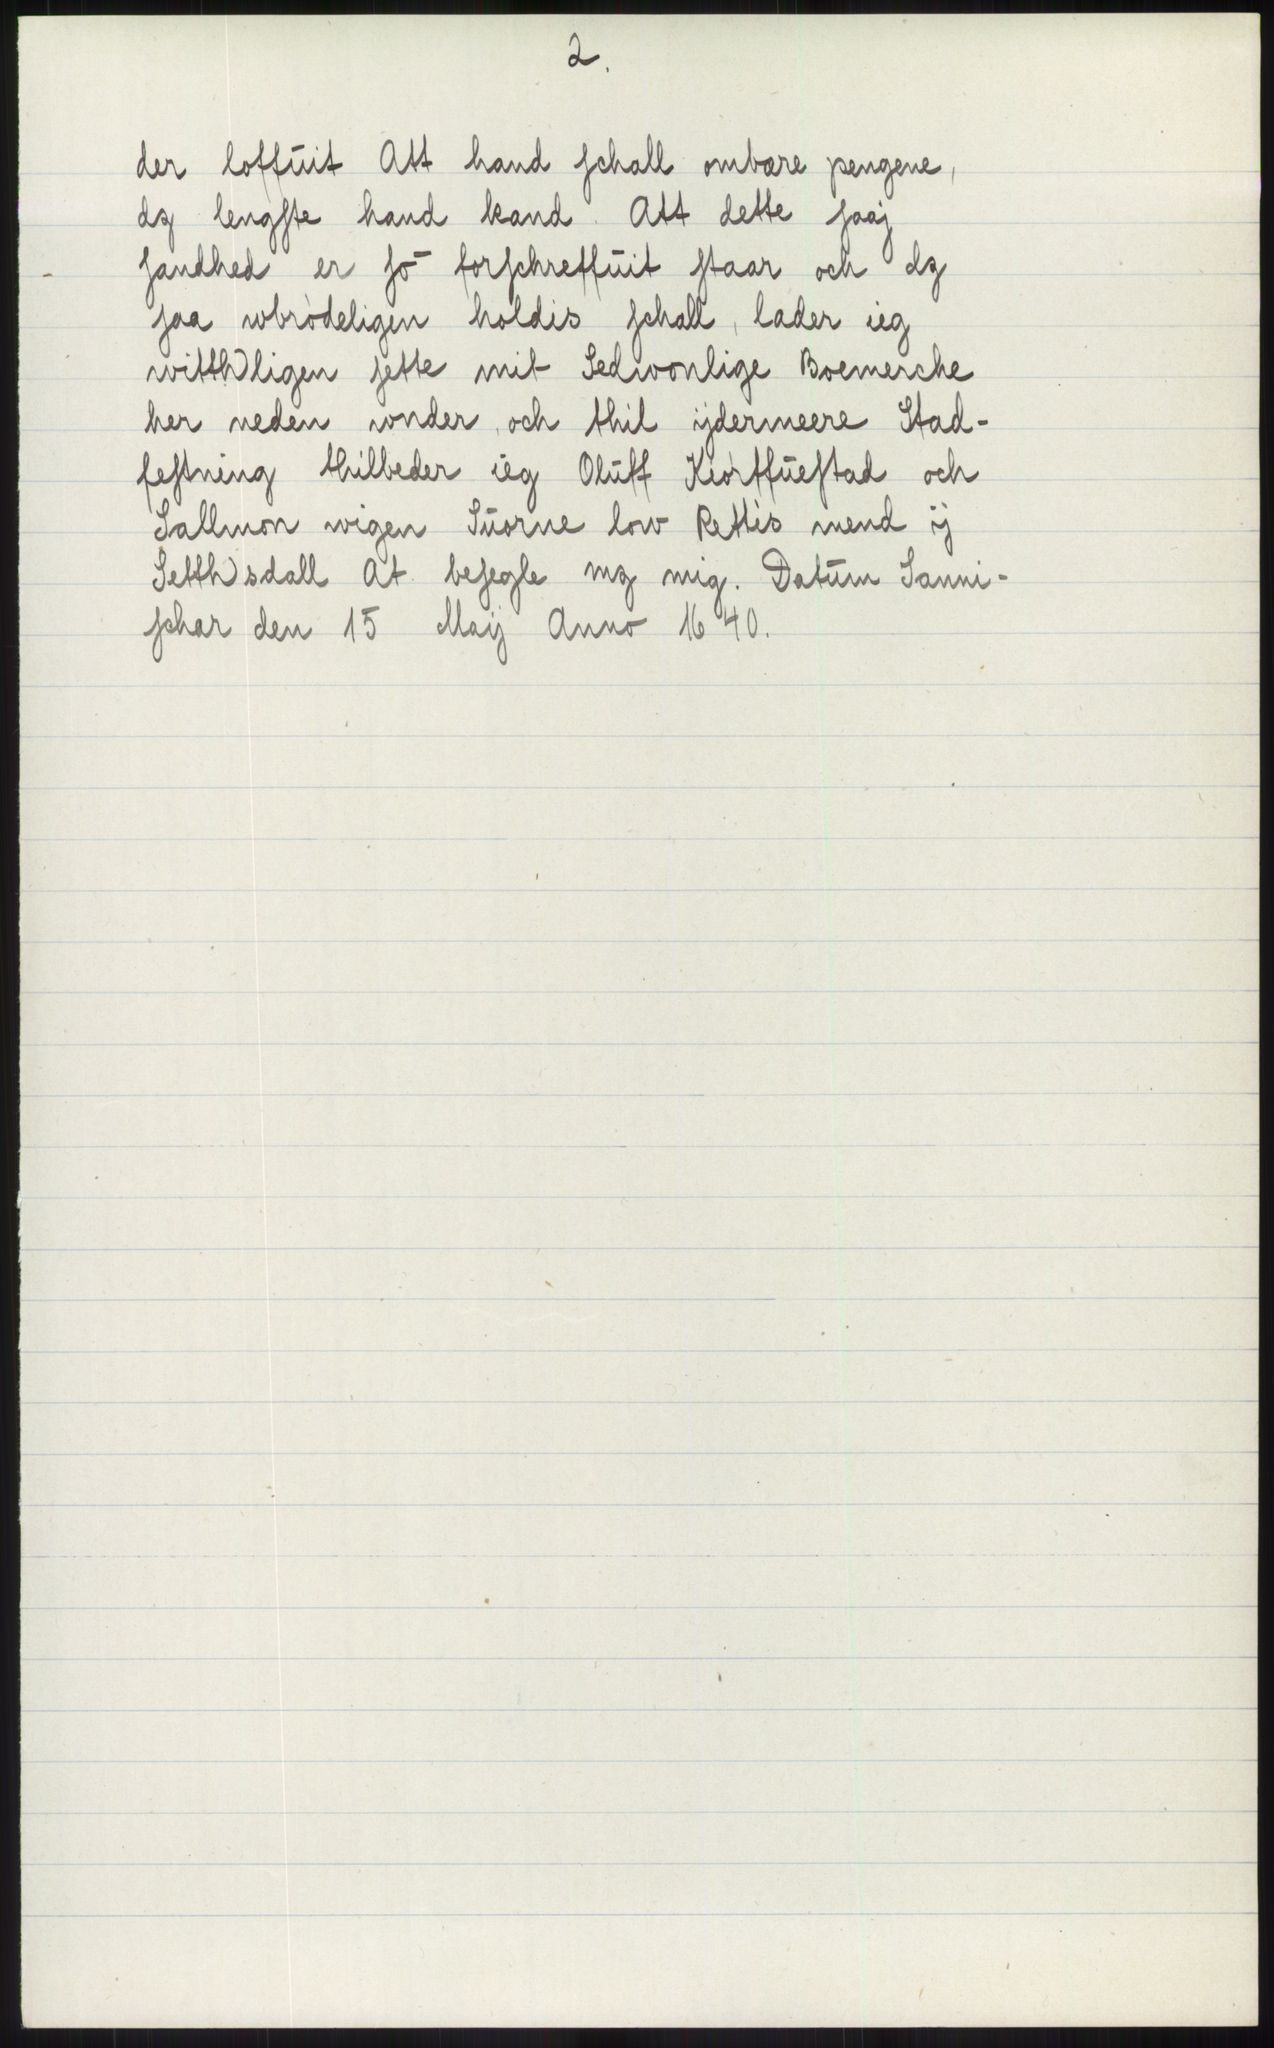 2.
der loffuit Att hand schall ombære pengene,
dz lengste hand kand. Att dette saaj
sandhed er so forschreffuit staar och dz
saa wbrødeligen holdis schall, lader ieg
witth)ligen sette mit Sedwonlige Boemerche
her neden wnder, och thil ijdermeere Stad-
festning thilbeder ieg Oluff Kiörtfuestad och
Sallmon wigen Suorne low Rettis mend ij
Setth)sdall At besegle mz mig. Datum Sanni-
schar den 15 Maij Anno 1640.